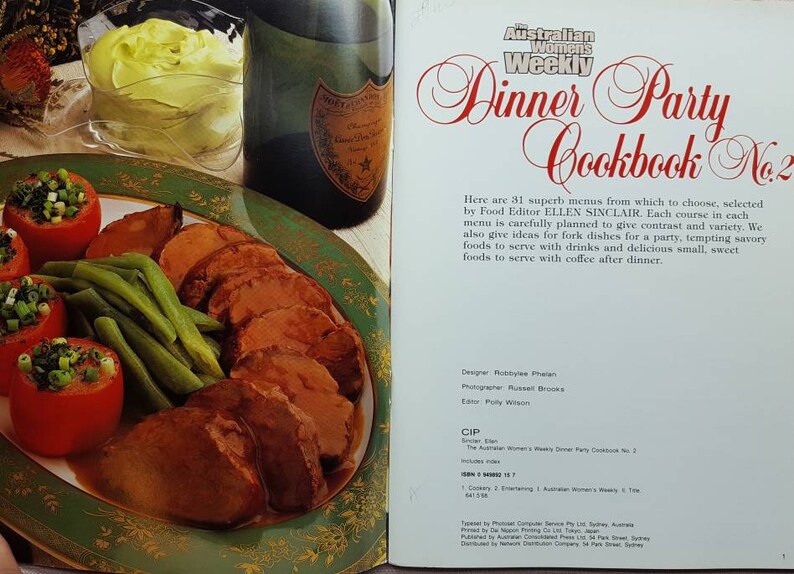 MOËT & CHANDON
Champagne
The
Australian
Women's
Weekly
Dinner Party
Cookbook No. 2
Here are 31 superb menus from which to choose, selected
by Food Editor ELLEN SINCLAIR. Each course in each
menu is carefully planned to give contrast and variety. We
also give ideas for fork dishes for a party, tempting savory
foods to serve with drinks and delicious small, sweet
foods to serve with coffee after dinner.
Designer: Robbylee Phelan
Photographer: Russell Brooks
Editor: Polly Wilson
CIP
Sinclair, Ellan
The Australian Women's Weekly Dinner Party Cookbook No. 2
Includes index
ISBN 0 949892 15 7
1. Cookery. 2. Entertaining. I. Australian Women's Weekly. II. Title.
641.5'68
Typeset by Photoset Computer Service Pty Ltd, Sydney, Australia
Printed by Dai Nippon Printing Co Ltd, Tokyo, Japan
Published by Australian Consolidated Press Ltd, 54 Park Street, Sydney
Distributed by Network Distribution Company, 54 Park Street, Sydney
1